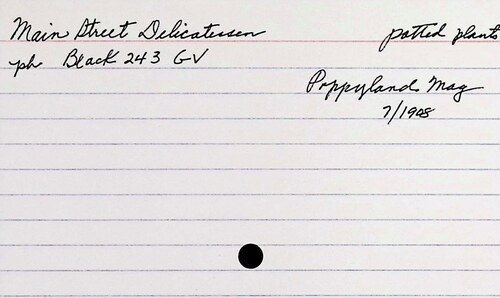 Main Street Delicatessen
potted plants
ph Black 243 GV
Poppyland Mag
7/1908